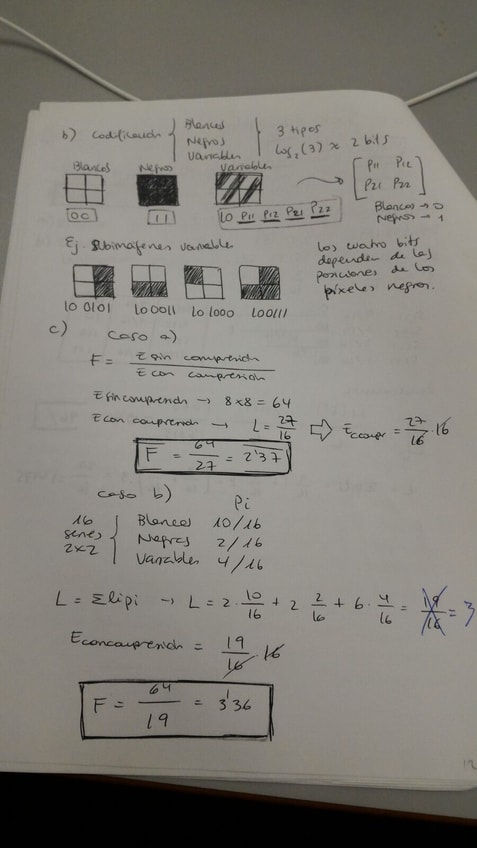 b) Codificación { Blancos
Negros
Variables } 3 tipos
log₂(3) ≈ 2 bits
Blancos Negros Variables
00 11 10 P11 P12 P21 P22
[ P11 P12
P21 P22 ]
Blancos → 0
Negros → 1
Ej. Subimágenes variables
10 0101 10 0011 10 1000 10 0111
los cuatro bits
dependen de las
posiciones de los
píxeles negros.
c) Caso a)
F = E sin compresión / E con compresión
E sin compresión → 8x8 = 64
E con compresión → L = 27/16 ⇨ E ccompr = 27/16 · 16
F = 64/27 = 2'37
Caso b)
Pi
16
series
2x2 { Blancos 10/16
Negros 2/16
Variables 4/16
L = Σ li pi → L = 2 · 10/16 + 2 2/16 + 6 · 4/16 = 19/16 = 3
E con compresión = 19/16 · 16
F = 64/19 = 3'36